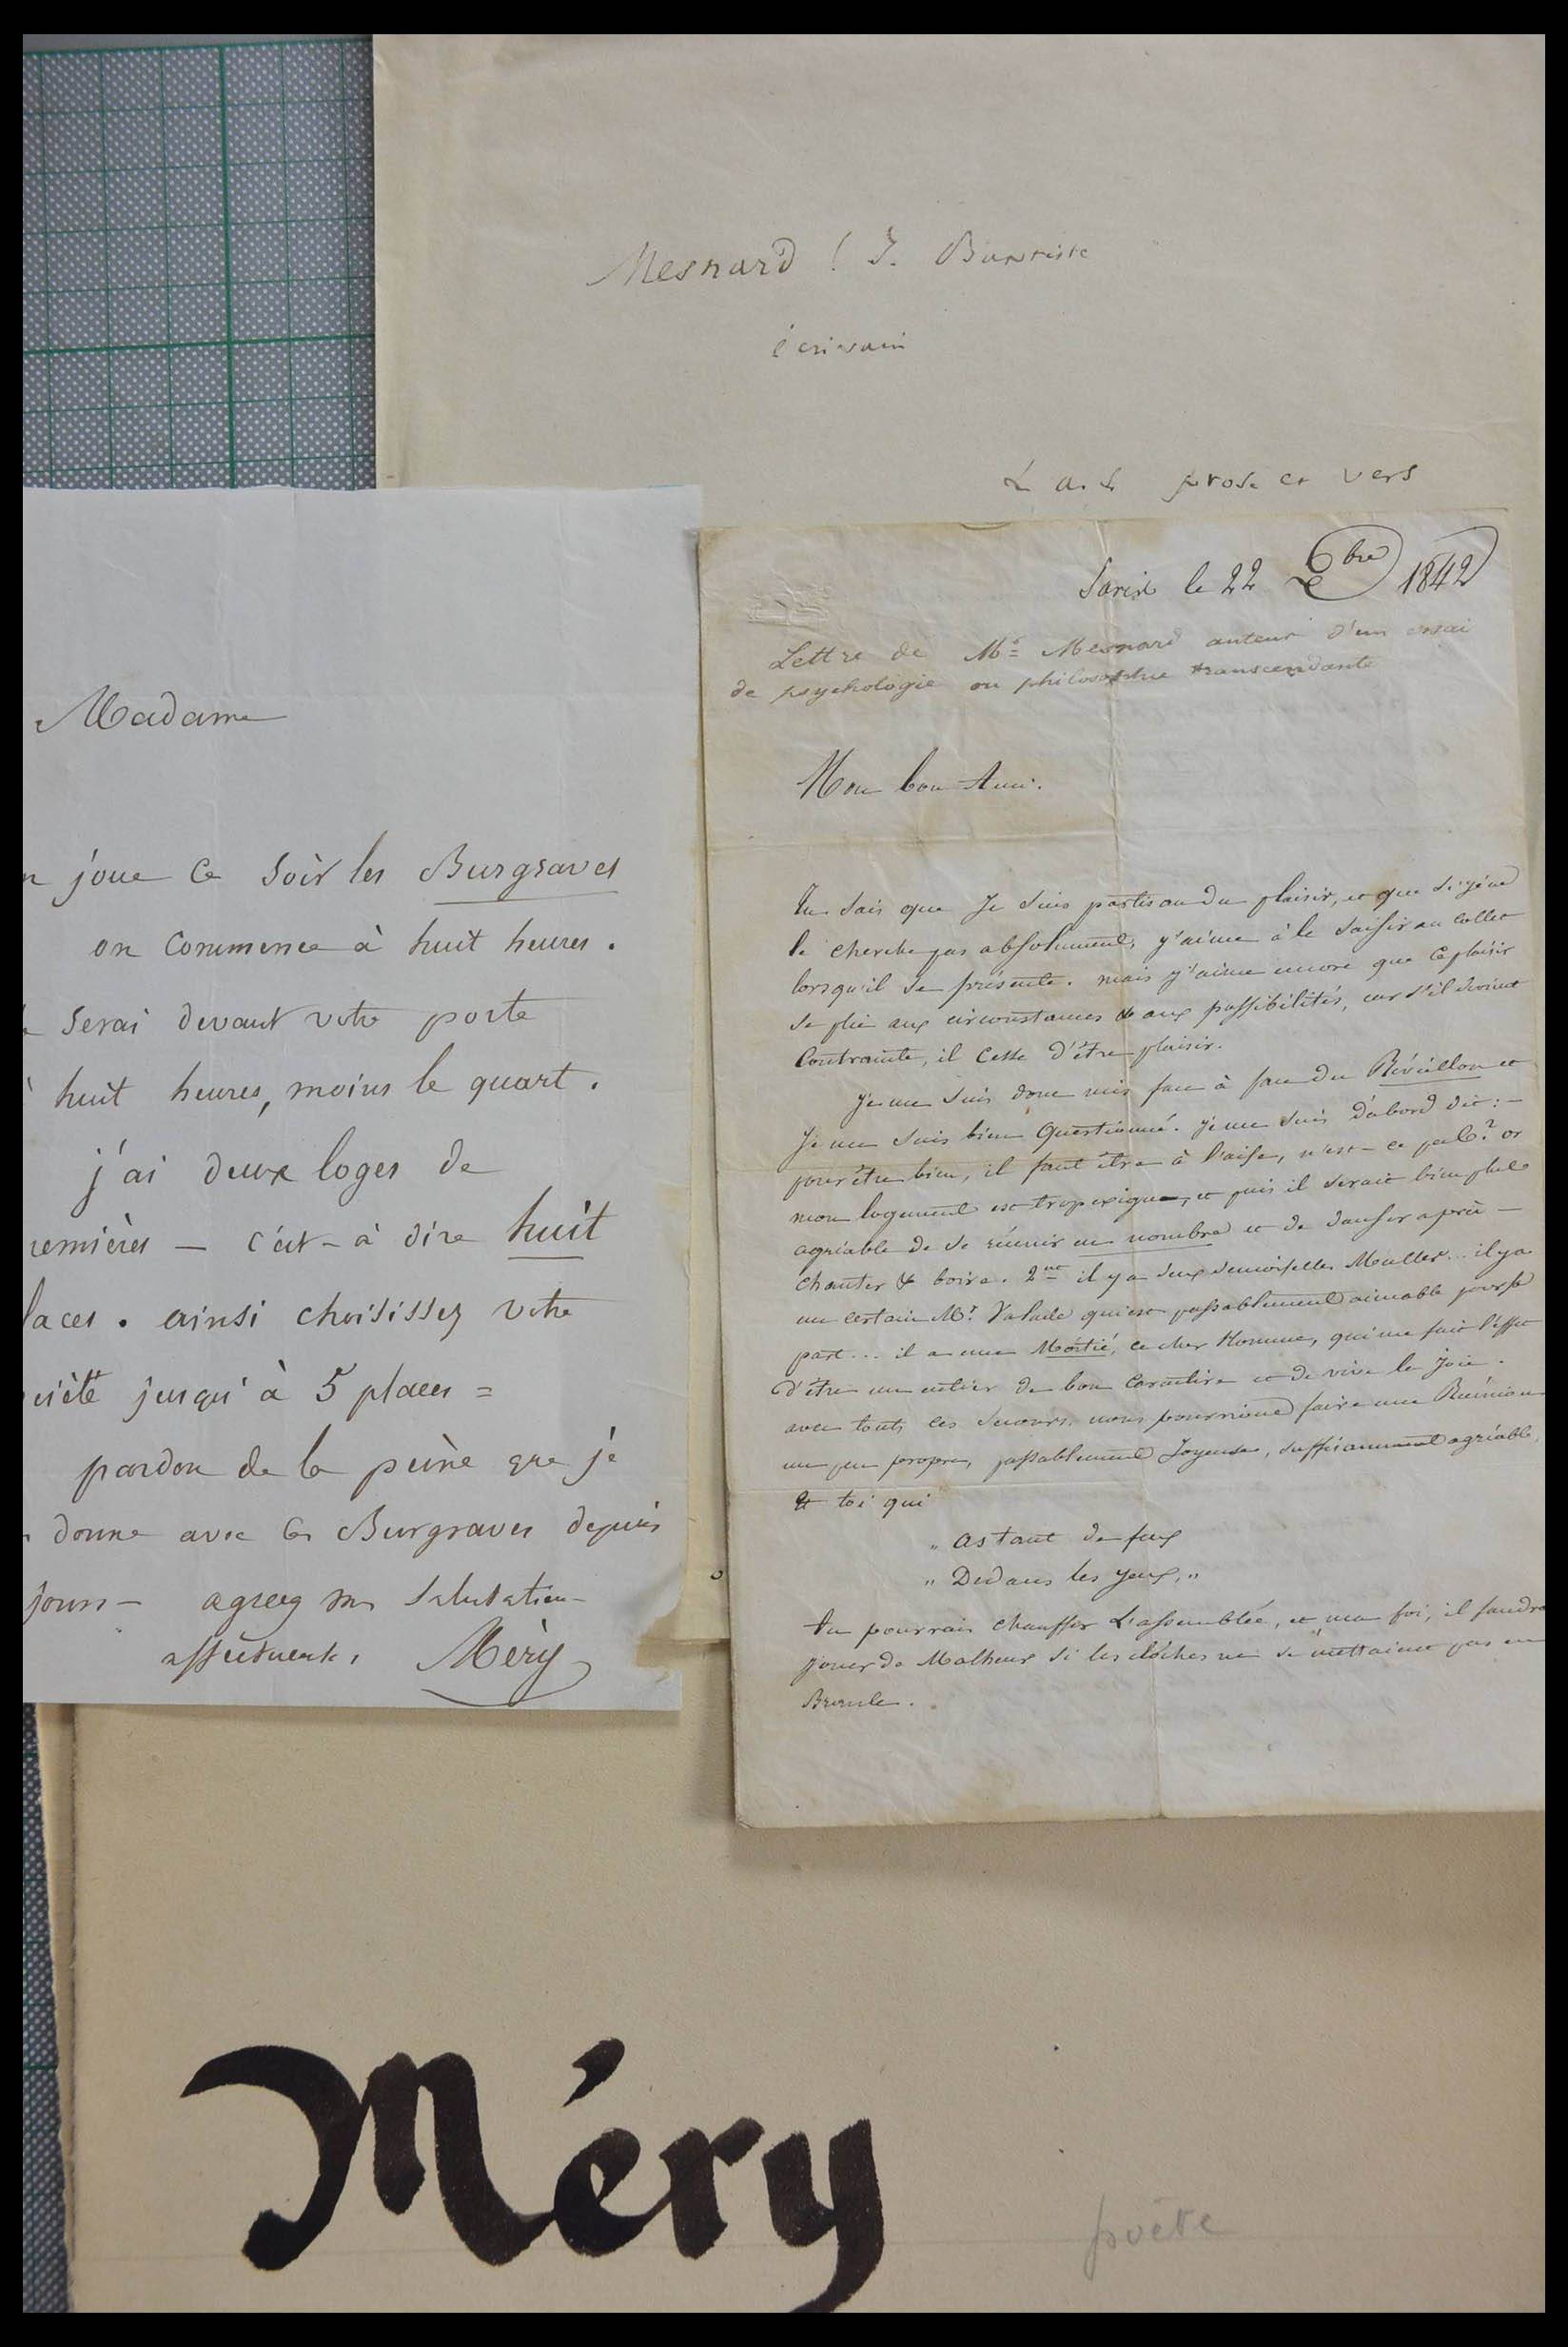 Mesnard (J. Baptiste
écrivain
L. a. s. prose et vers
Madame
joue ce soir les Burgraves
on commence à huit heures.
serai devant votre porte
huit heures, moins le quart.
j'ai deux loges de
remières — c'est-à dire huit
laces. ainsi choisissez votre
ciété jusqu'à 5 places =
pardon de la peine que je
donne avec les Burgraves depuis
jours — agreez mes salutation
affectueuses, Méry
Paris le 22 Xbre 1842
Lettre de Mr Mesnard auteur d'un essai
de psychologie ou philosophie transcendante
Mon bon Ami.
Tu sais que Je suis partisan du plaisir, et que si je ne
le cherche pas absolument, j'aime à le saisir au collet
lorsqu'il se présente. mais j'aime encore que ce plaisir
se plie aux circonstances & aux possibilités, car s'il devient
Contrainte, il Cesse d'être plaisir.
Je me suis donc mis face à face du Réveillon et
Je me suis bien Questionné. Je me suis d'abord dit : —
pour être bien, il faut être à l'aise, n'est-ce pas? or
mon logement est trop exigu, et puis il serait bien plus
agréable de se réunir en nombre et de danser après —
chanter & boire. 2nt il y a deux demoiselles Muller... il y a
un certain Mr. Valade qui est passablement aimable pour sa
part... il a une Moitié, ce cher Homme, qui me fait l'effet
d'être un entier de bon Caractère et de vive la Joie.
avec touts ces secours, nous pourrions faire une Réunion
un peu propre, passablement Joyeuse, suffisamment agréable,
Et toi qui
" as tant de feux
" Dedans les yeux, "
tu pourrais chauffer L'assemblée, et ma foi, il faudra
jouer de Malheur si les cloches ne se mettaient pas en
Branle.
Méry
poète